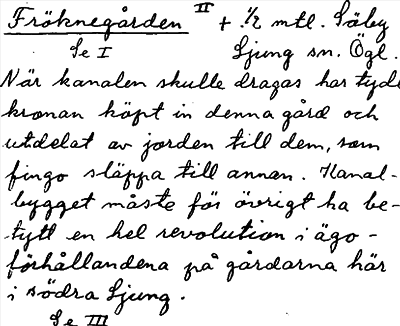 Fröknegården II + 1/2 mtl. Säby
Se I Ljung sn. Ögl.
När kanalen skulle dragas har tyd
kronan köpt in denna gård och
utdelat av jorden till dem, som
fingo släppa till annan. Kanal-
bygget måste för övrigt ha be-
tytt en hel revolution i ägo-
förhållandena på gårdarna här
i södra Ljung.
Se III